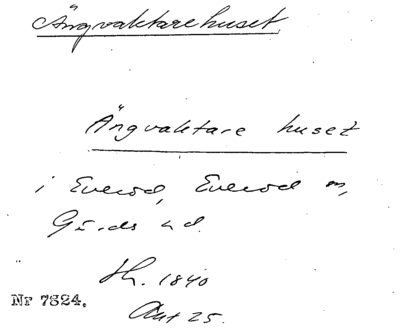 Ängvaktarehuset
Ängvaktare huset
i Everöd, Everöd sn,
Gärds hd.
Hh. 1840
Akt 25.
Nr 7324.